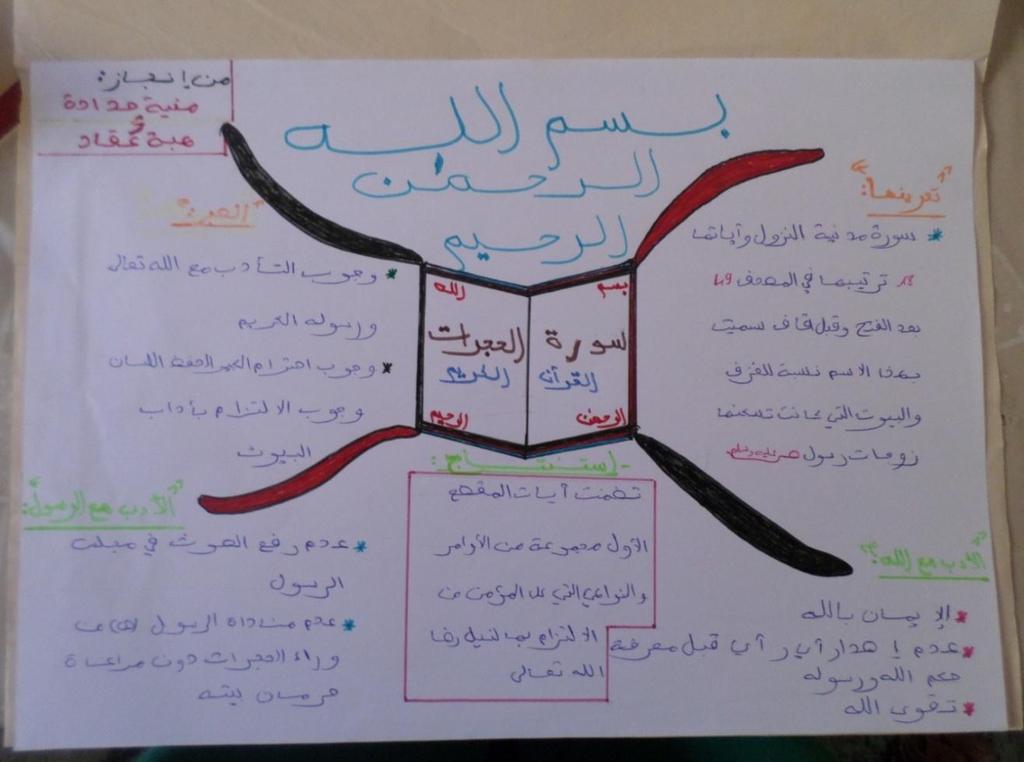 من إنجاز:
منية حدادة
و
هبة عقاد
بسم الله
الرحمن
الرحيم
"تعريفها:"
* سورة مدنية النزول وآياتها
18. ترتيبها في المصحف 49
بعد الفتح وقبل قاف سميت
بهذا الاسم نسبة للغرف
والبيوت التي كانت تسكنها
زوجات رسول صلى عليه وسلم
"العبر:"
* وجوب التأدب مع الله تعالى
ورسوله الكريم
* وجوب احترام الغير الحفظ اللسان
وجوب الالتزام بآداب
البيوت
بسم
الله
سورة
الحجرات
القرآن
الكريم
الرحمن
الرحيم
"الأدب مع الله:"
* الإيمان بالله
* عدم إصدار أي رأي قبل معرفة
حكم الله ورسوله
* تقوى الله
"الأدب مع الرسول:"
* عدم رفع الصوت في مجلس
الرسول
* عدم مناداة الرسول من
وراء الحجرات دون مراعاة
حرمان بيته
- إستنتاج:
تضمنت آيات المقطع
الأول مجموعة من الأوامر
والنواهي التي على المؤمن من
الالتزام بها لنيل رضا
الله تعالى